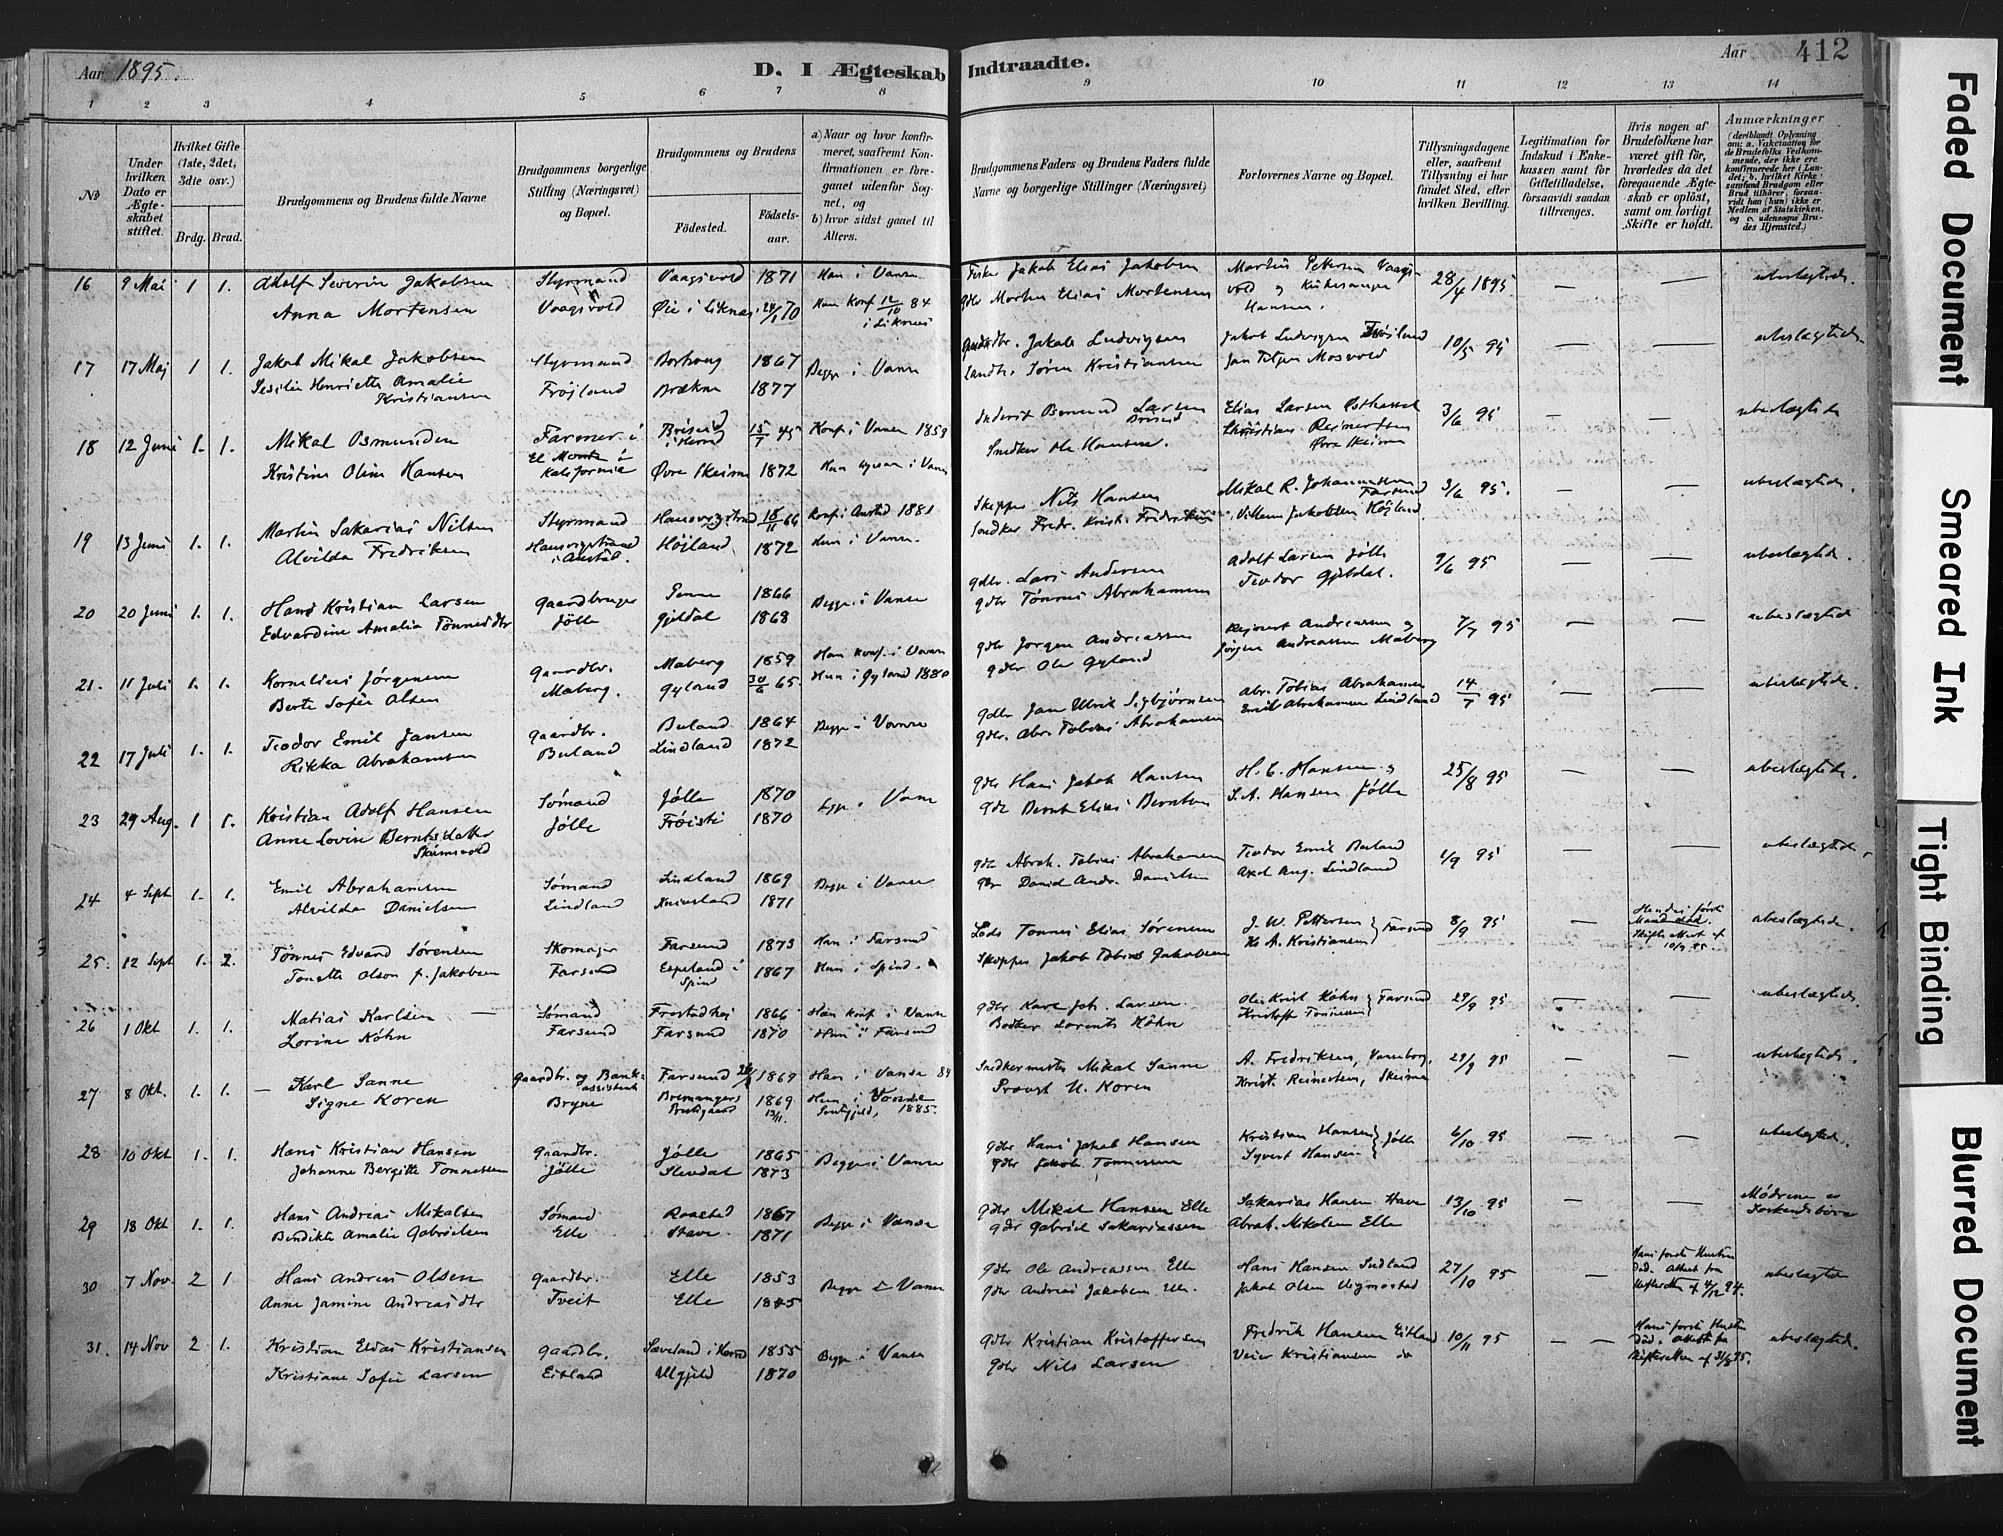 Aar 1895.
D. I Ægteskab Indtraadte.
Aar 412
1 2 3 4 5 6 7 8 9 10 11 12 13 14
No
Under hvilken Dato er Ægteskabet stiftet.
Hvilket Gifte (1ste, 2det, 3die osv.)
Brdg. Brud.
Brudgommens og Brudens fulde Navne
Brudgommens borgerlige Stilling (Næringsvei) og Bopæl.
Brudgommens og Brudens
Fødested.
Fødselsaar.
a) Naar og hvor konfirmeret, saafremt Konfirmationen er foregaaet udenfor Sognet, og
b) hvor sidst gaaet til Alters.
Brudgommens Faders og Brudens Faders fulde Navne og borgerlige Stillinger (Næringsvei)
Forlovernes Navne og Bopæl.
Tillysningsdagene eller, saafremt Tillysning ei har fundet Sted, efter hvilken Bevilling.
Legitimation for Indskud i Enkekassen samt for Giftetilladelse, forsaavidt saadan tiltrænges.
Hvis nogen af Brudefolkene har været gift før, hvorledes da det foregaaende Ægteskab er opløst, samt om lovligt Skifte er holdt.
Anmærkninger
(deriblandt Oplysning om: a. Vaccination for de Brudefolks Vedkommende, der ikke ere konfirmerede her i Landet; b. hvilket Kirkesamfund Brudgom eller Brud tilhører, forsaavidt han (hun) ikke er Medlem af Statskirken, og c. udensogns Brudes Hjemsted.)
16 9 Mai 1 1. Adolf Severin Jakobsen Styrmand Vaagsvold 1871 Han i Vanse Fisker Jakob Elias Jakobsen Martin Pettersen Vaagsvold og Kirkesanger Hansen. 28/4 1895 — — ubeslægtede.
Anna Mortensen Vaagsvold Øie i Liknes 24/1 70 Hun Konf 12/10 84 i Liknes gdbr Morten Elias Mortensen
17 17 Maj 1 1. Jakob Mikal Jakobsen Styrmand 1867 Begge i Vanse Gaardbr. Jakob Ludvigsen Jakob Ludvigsen Frøjland 10/5 95 — — ubeslægtede
Sesilie Henriette Amalie Kristiansen Frøjland Brækne 1877 Søren Kristiansen Mosvold
18 12 Juni 1. 1. Mikal Osmundsen Farmer i El Monte i Kalifornia Briseid i Herred 15/7 45 Konf i Vanse 1859 Larsen Briseid Elias Larsen 3/6 95 — — ubeslægtede
Kristine Oline Hansen Øvre Skeime 1872 Hun i Vanse Snedker Ole Hansen. Christian Reinertsen Øvre Skeime
19 13 Juni 1. 1. Martin Sakarias Nilsen Styrmand 18/11 66 Konf i Austad 1881 Skipper Nils Hansen Mikal R. Johannessen Farsund 3/6 95. — — ubeslægtede.
Alvilda Fredriksen i Austad. Højland 1872 Hun i Vanse. Snedker Fredr. Krist. Fredriksen Villum Jakobsen Højland
20 20 Juni 1. 1. Hans Kristian Larsen Gaardbruger 1866 Begge i Vanse gdbr. Lars Andersen Adolf Larsen Jølle 9/6 95 — — ubeslægtede.
Edvardine Amalia Tønnesdtr Jølle Gjeldal 1868 gdbr Tønnes Abrahamsen Teodor Gjeldal.
21. 11 Juli 1. 1. Kornelius Jørgensen Gaardbr. Maberg 1859 Han konf. i Vanse gdbr Jørgen Andreassen Andreassen og 7/7 95 — — ubeslægtede
Berte Sofie Olsen Maberg. Gyland 30/6 65. Hun i Gyland 1880 gdbr Ole Gyland Jørgen Andreassen Maberg
22 17 Juli 1. 1. Teodor Emil Jansen Gaardbr. Buland 1864 Begge i Vanse gdbr Jan Ulrik Sigbjørnsen Abr. Tobias Abrahamsen 14/7 95 — — ubeslægtede.
Rikka Abrahamsen Buland Lindland 1872 gdbr. Abr. Tobias Abrahamsen Emil Abrahamsen Lindland
23 29 Aug. 1 1. Kristian Adolf Hansen Sømand Jølle 1870 Begge i Vanse gdbr Hans Jakob Hansen H. C. Hansen og 25/8 95 — — ubeslægtede.
Anne Lovise Berntsdatter Skeimsvold Jølle Frøisti 1870 gdbr Bernt Elias Berntsen S. A. Hansen Jølle
24 4 Sept 1. 1. Emil Abrahamsen Sømand Lindland 1869 Begge i Vanse gdbr Abrah. Tobias Abrahamsen Teodor Emil Buland 1/9 95 — — ubeslægtede.
Alvilda Danielsen Lindland 1871 gbr Daniel Andr. Danielsen Axel Aug. Lindland
25. 12 Sept 1. 2. Tønnes Edvard Sørensen Skomager Farsund 1873 Han i Farsund Lods Tønnes Elias Sørensen J. W. Pettersen } Farsund 8/9 95 — Hendes første Mand død. Skifte Attest af 10/9 95. ubeslægtede.
Tonette Olson f. Jakobsen Farsund Espeland i Spind 1867 Hun i Spind. Skipper Jakob Tobias Jakobsen A. Kristiansen
26 1 Okt 1. 1. Matias Karlsen — Sømand 1866 Han konf i Vanse gdbr Karl Joh. Larsen. Ole Krist Køhn } Farsund 29/9 95 — — ubeslægtede.
Lorine Køhn Farsund Farsund 1870 Hun i Farsund Bødker Lorents Køhn Kristoff Tønnesen
27 8 Okt. 1. 1. — Karl Sanne Gaardbr. og Bankassistent Farsund 1869 Han i Vanse 84 Snedkermester Mikal Sanne A. Fredriksen, Vanseborg, 29/9 95 — — ubeslægtede.
Signe Koren Bryne Bremangers Prestegaard 1869 13/11 Hun i 1885. Provst U. Koren Krist. Reinertsen, Skeime
28 10 Okt 1. 1. Hans Kristian Hansen Gaardbr. Jølle 1865 Begge i Vanse gdbr Hans Jakob Hansen Kristian Hansen } Jølle 6/10 95 — — ubeslægtede.
Johanne Bergitte Tønnessen Jølle 1873 gdbr Jakob Tønnessen Syvert Hansen
29 18 Okt 1. 1. Hans Andreas Mikalsen Sømand 1867 Begge i Vanse gdbr Mikal Hansen Elle Sakarias Hansen Have 13/10 95 — — Mødrene er Søskendebørn
Bendikte Amalie Gabrielsen Elle 1871 gdbr Gabriel Sakariassen Abrah. Mikalsen Elle
30 7 Nov. 2 1 Hans Andreas Olsen Gaardbr. Elle 1853 Begge i Vanse gdbr Ole Andreassen Elle Hans Hansen 27/10 95 — Hans første Hustru død. Attest fra Skifteretten af 4/12 94. ubeslægtede
Anne Jamine Andreasdtr Tveit Elle gdbr Andreas Jakobsen Elle. Jakob Olsen Vigmostad
31. 14 Nov 2 1. Kristian Elias Kristiansen Gaardbr. i Herred 1855 Begge i Vanse gdbr Kristian Kristoffersen Fredrik Hansen Eitland 10/11 95 — — Hans første Hustru død. Attest fra Skifteretten af 31/8 95. ubeslægtede.
Kristiane Sofie Larsen Eitland Ulgjeld 1870 gdbr Nils Larsen Kristiansen do
Faded Document
Smeared Ink
Tight Binding
Blurred Document